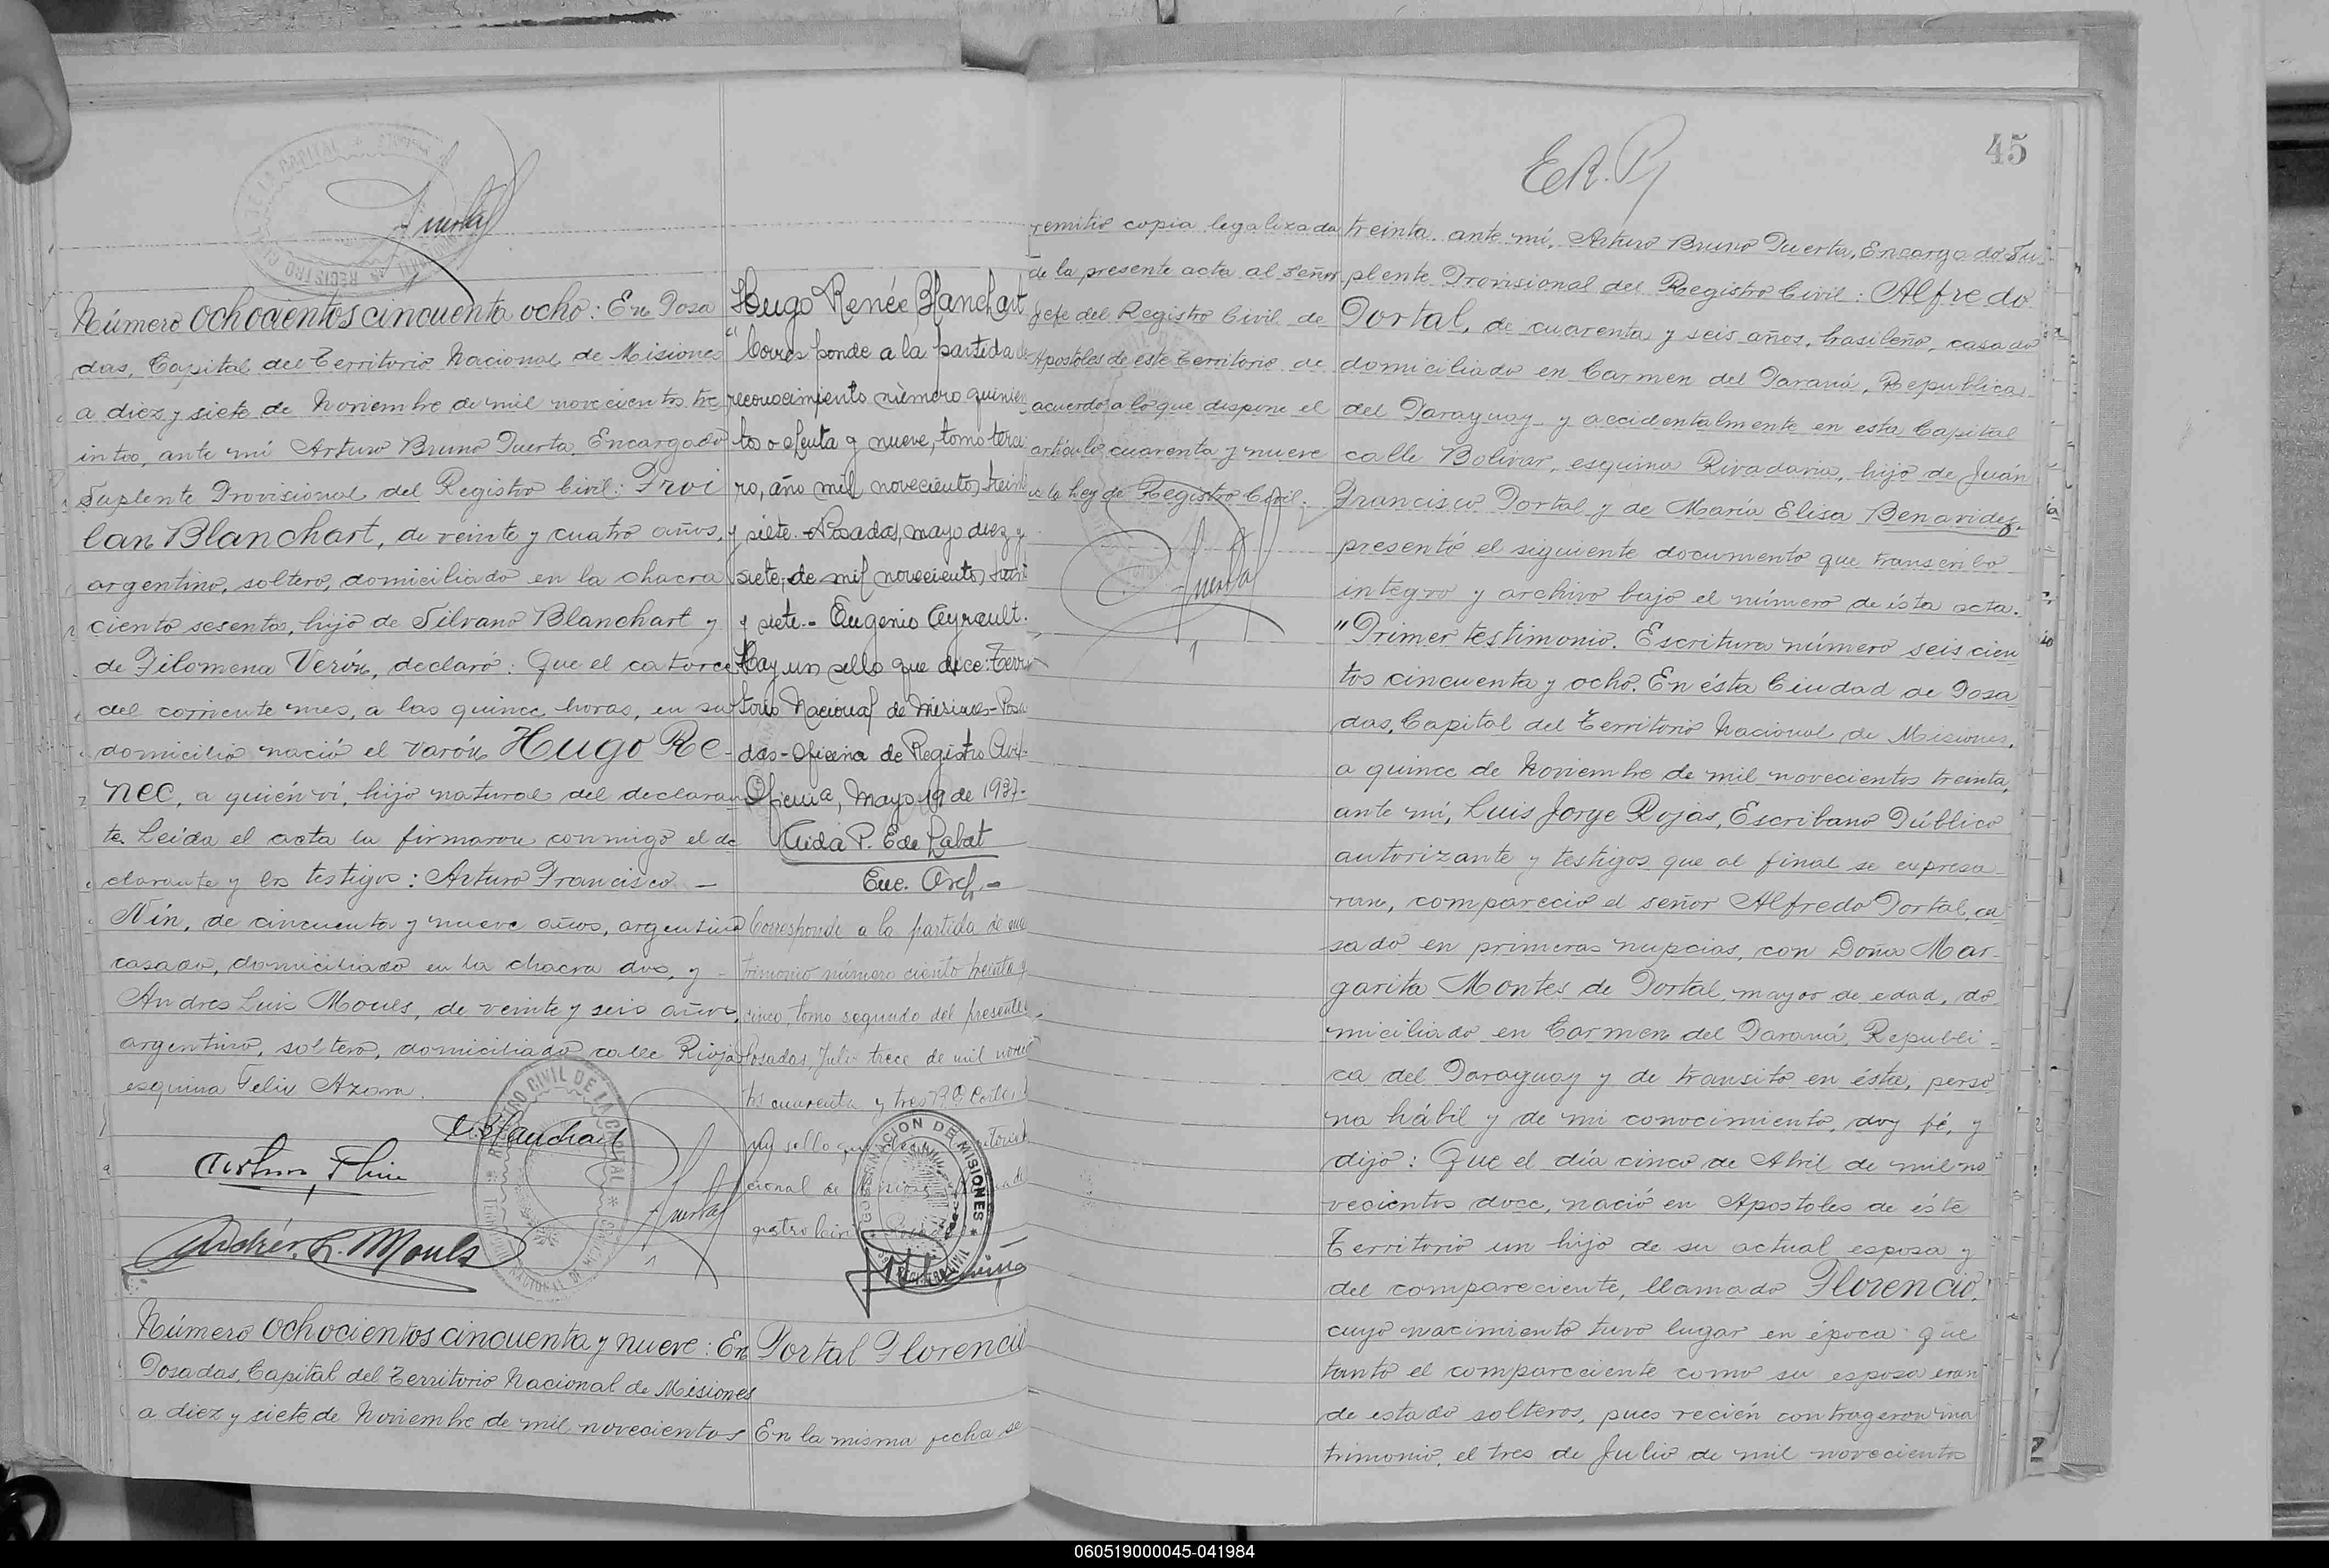 Puerta
Número ochocientos cincuenta ocho: En Posa
das, Capital del Territorio Nacional de Misiones
a diez y siete de Noviembre de mil novecientos tre
inta, ante mi Arturo Bruno Puerta, Encargado
Suplente Provisional del Registro Civil: Froi
lan Blanchart, de veinte y cuatro años,
argentino, soltero, domiciliado en la chacra
ciento sesenta, hijo de Silvano Blanchart y
de Filomena Verón, declaró: Que el catorce
del corriente mes, a las quince horas, en su
domicilio nació el varón Hugo Re-
neé, a quién ví, hijo natural del declaran
te. Leida el acta la firmaron conmigo el de
clarante y los testigos: Arturo Francisco —
Nin, de cincuenta y nueve años, argentino
casado, domiciliado en la chacra dos, y -
Andres Luis Mouls, de veinte y seis años,
argentino, soltero, domiciliado calle Rioja
esquina Felix Azara.
Blanchart
Arturo F Nin
Puerta
Andrés L. Mouls
REGISTRO CIVIL DE LA CAPITAL
Hugo Renée Blanchart
"Corresponde a la partida de
reconocimiento número quinien
tos ochenta y nueve, tomo terce
ro, año mil novecientos trein
y siete.- Posadas, mayo diez y
siete, de mil novecientos treint
y siete.- Eugenio Ceyrault.
Hay un sello que dice: Terri
torio Nacional de Misiones-Posa
das-Oficina de Registro Civil-
Oficina, Mayo 19 de 1937-
Aida P. E de Labat
Enc. Arch.-
Corresponde a la partida de ma
trimonio número ciento treinta y
cinco, tomo segundo del presente
Posadas, Julio trece de mil novecie
tos cuarenta y tres
un sello que
cional de Misiones
gistro Civil Posadas
GOBERNACION DE MISIONES
Número ochocientos cincuenta y nueve: En
Posadas, Capital del Territorio Nacional de Misiones
a diez y siete de Noviembre de mil novecientos
Portal Florencio
En la misma fecha se
45
E.R.P.
remitió copia legalizada
de la presente acta al Señor
Jefe del Registro Civil de
Apostoles de este Territorio de
acuerdo a lo que dispone el
artículo cuarenta y nueve
de la Ley de Registro Civil.
Puerta
treinta. ante mí, Arturo Bruno Puerta, Encargado Su
plente Provisional del Registro Civil: Alfredo
Portal, de cuarenta y seis años, brasileño, casado
domiciliado en Carmen del Paraná, Republica
del Paraguay y accidentalmente en esta Capital
calle Bolivar, esquina Rivadavia, hijo de Juán
Francisco Portal y de María Elisa Benavidez,
presentó el siguiente documento que transcribo
integro y archivo bajo el número de ésta acta.
"Primer testimonio. Escritura número seiscien
tos cincuenta y ocho. En ésta Ciudad de Posa
das, Capital del Territorio Nacional de Misiones,
a quince de Noviembre de mil novecientos treinta,
ante mí, Luis Jorge Rojas, Escribano Público
autorizante y testigos que al final se expresa-
ran, compareció el señor Alfredo Portal, ca
sado en primeras nupcias, con Doña Mar-
garita Montes de Portal, mayor de edad, do
miciliado en Carmen del Paraná, Republi-
ca del Paraguay y de transito en ésta, perso
na hábil y de mi conocimiento, doy fé, y
dijo: Que el día cinco de Abril de mil no
vecientos doce, nació en Apostoles de éste
Territorio un hijo de su actual esposa y
del compareciente, llamado Florencio,
cuyo nacimiento tuvo lugar en época que
tanto el compareciente como su esposa eran
de estado solteros, pues recién contrageron ma
trimonio, el tres de Julio de mil novecientos
060519000045-041984